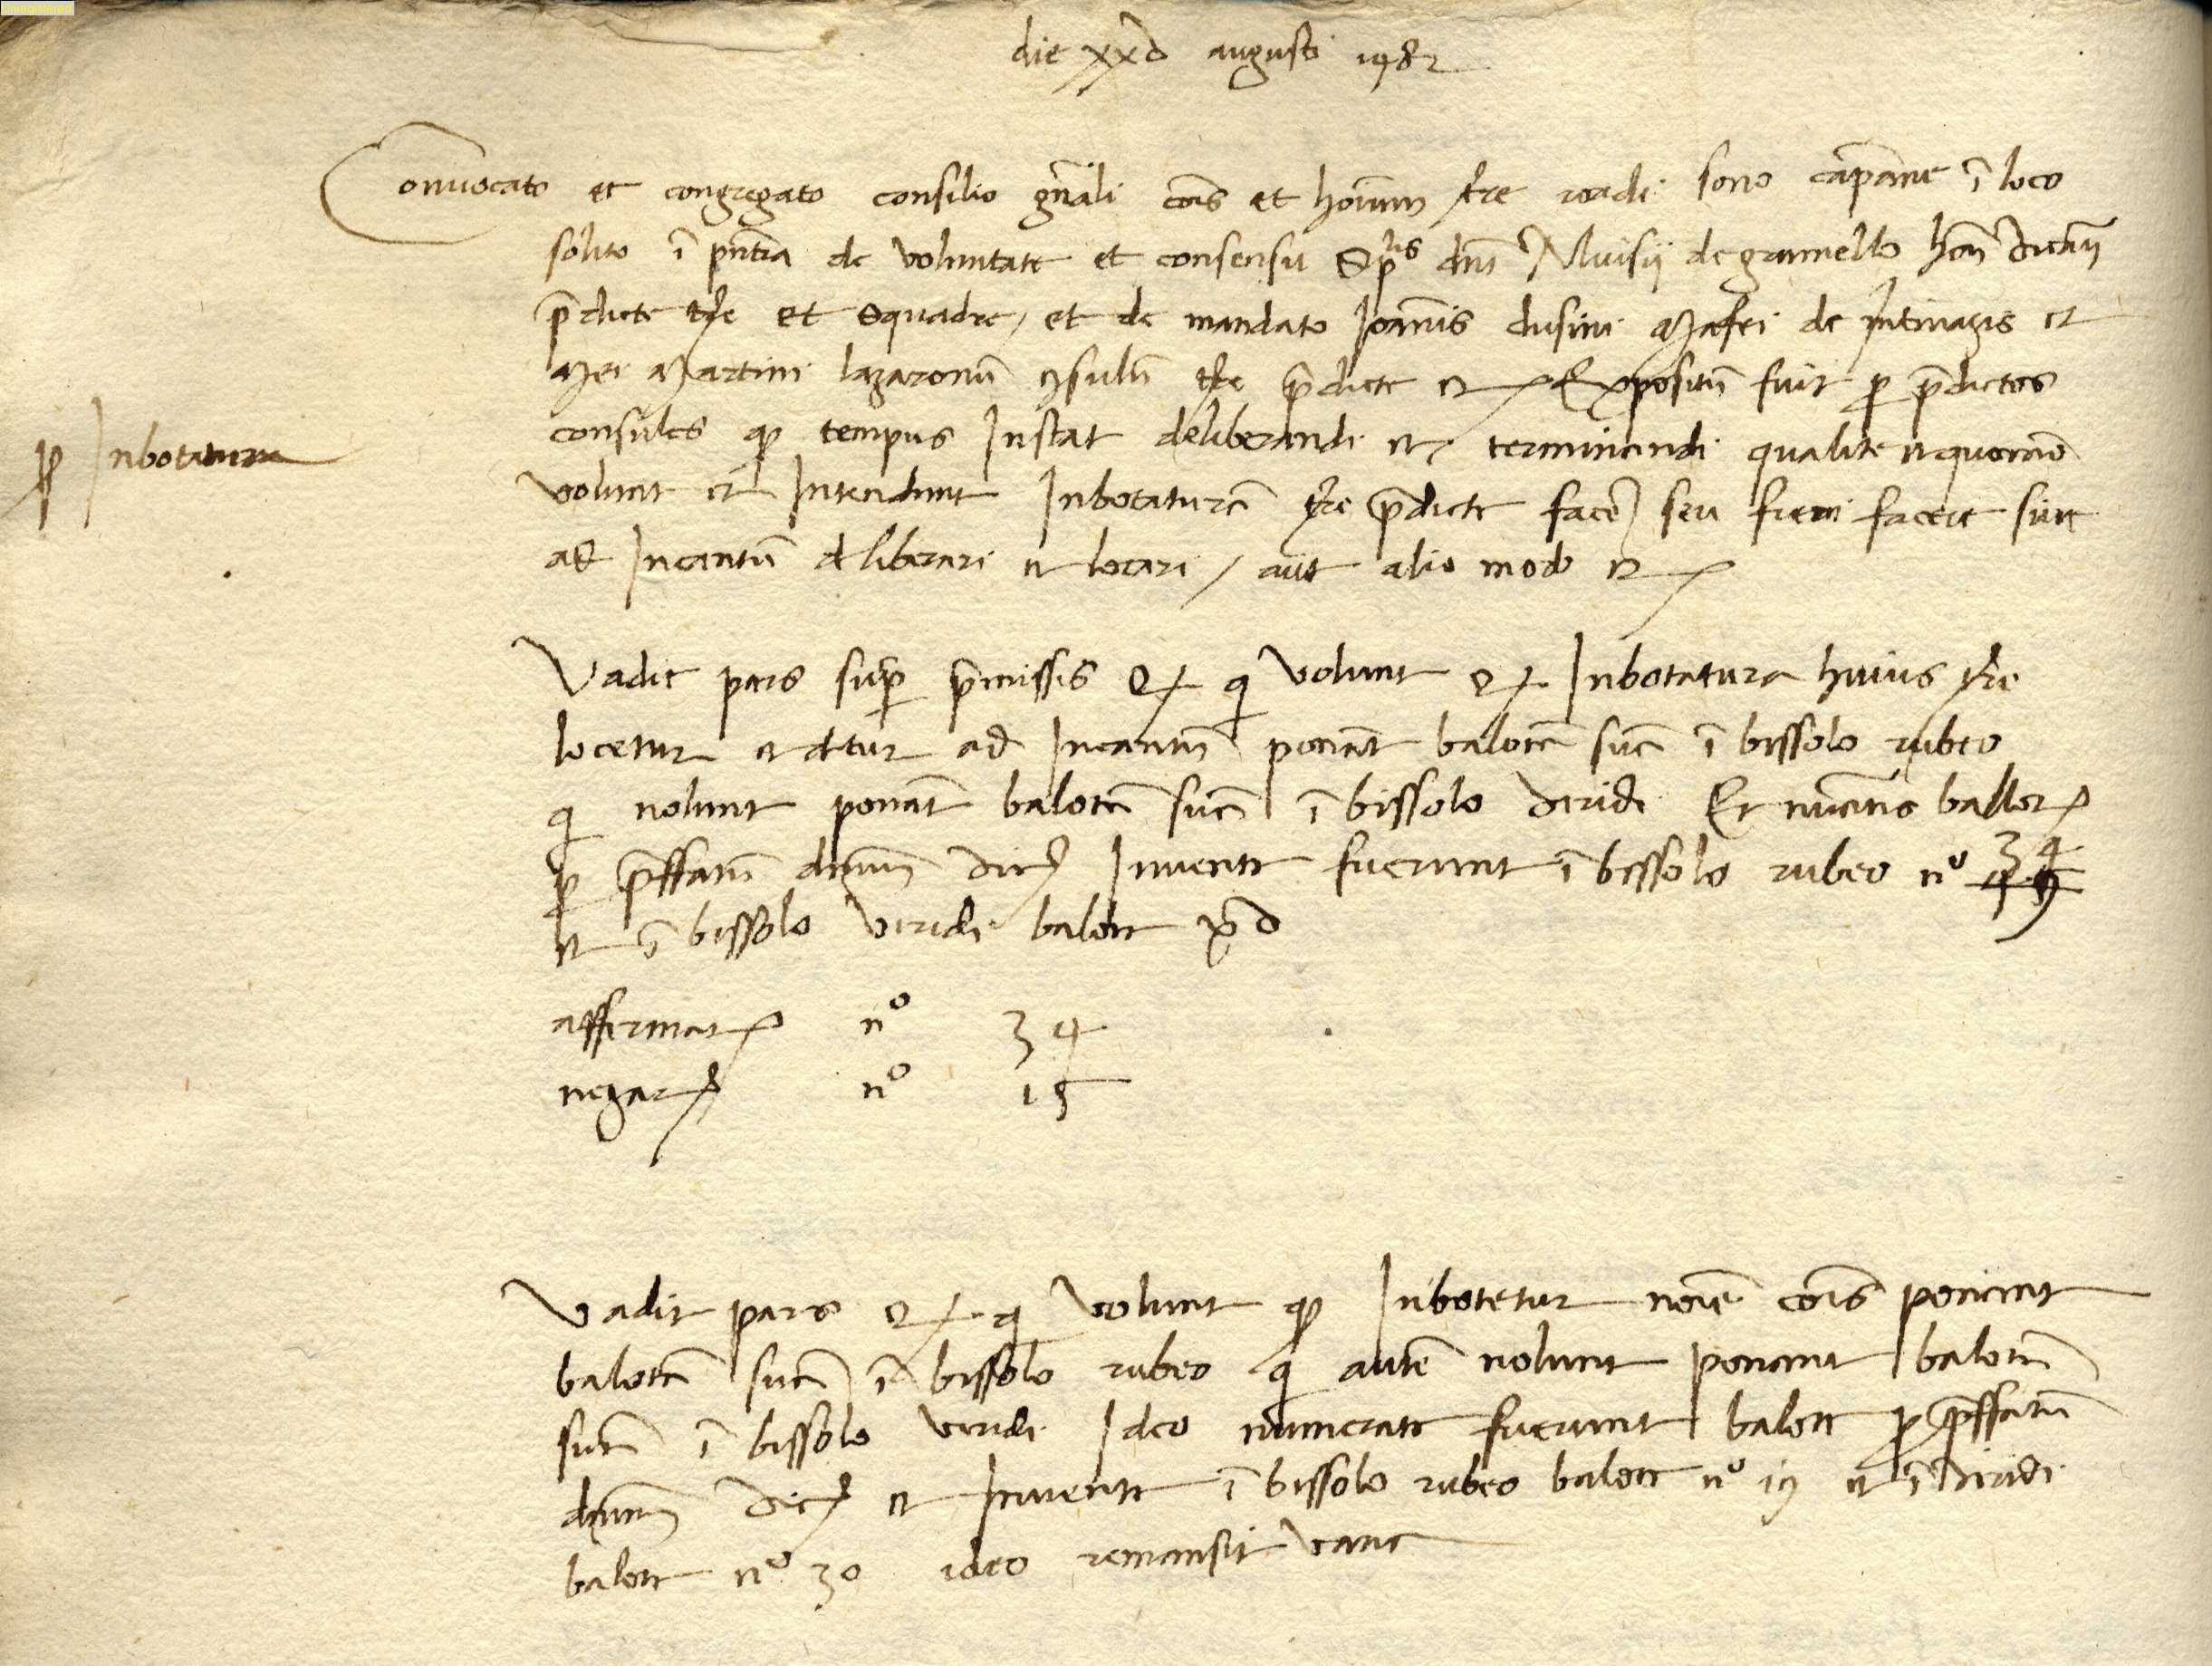 die xxv augusti 1482
Convocato et congregato consilio gn̄ali cōis et hoīum t̄re voadi sono campane ī loco
solito ī pñtia de voluntate et consensu Sp̄lis dnī Aluisij de grumello hon̄
p̄dicte t̄re et Squadre / et de mandato Joannis dusini Mafei de et
Martini lazaronū ꝯsulū t̄re p̄dicte etc Expositū fuit ꝑ p̄dictos
consules qꝫ tempus Instat deliberandi et terminandi qualitẽ et quomō
ꝓ Inbotatura
volunt et Intendunt Inbotaturā t̄re p̄dicte facē seu fieri facere sive
ad Incantū deliberari et locari / aut alio modo etc
Vadit pars suꝑ p̄missis etc qͥ volunt etc Inbotatura huius t̄re
locetur et detur ad Incantū ponāt balotā suā ī bissolo rubeo
qͥ nolunt ponāt balotā suā ī bissolo viridi Et nūatis ballotꝫ
ꝑ p̄ffatū dnum vic̄ Invente fuerunt ī bissolo rubeo nº 34
et ī bissolo viridi balote xv
affermatꝫ nº 34
negatꝫ nº 15
Vadit pars etc qͥ volunt qꝫ Inbotetur noīe cōis ponant
balotā suā ī bissolo rubeo qͥ autē nolunt ponant balotā
suā ī bissolo viridi Ideo numerate fuerunt balote ꝑ p̄ffatū
dnum vic̄ et Invente ī bissolo rubeo balote nº 19 et ī viridi
balote nº 30 ideo remansit vana